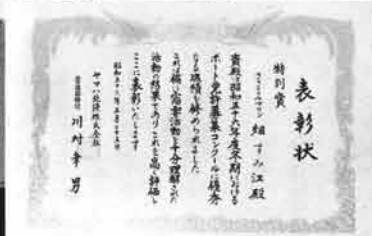 表彰状
特別賞
細すみ江殿
貴殿は昭和五十六年度冬期における
ボート免許募集コンクールに優秀
なる成績を修められました
これは偏に営業活動を十分理解された
活動の結果であり これを高く評価し
ここに表彰いたします
昭和五十六年三月二十五日
ヤマハ発動機株式会社
川村幸男